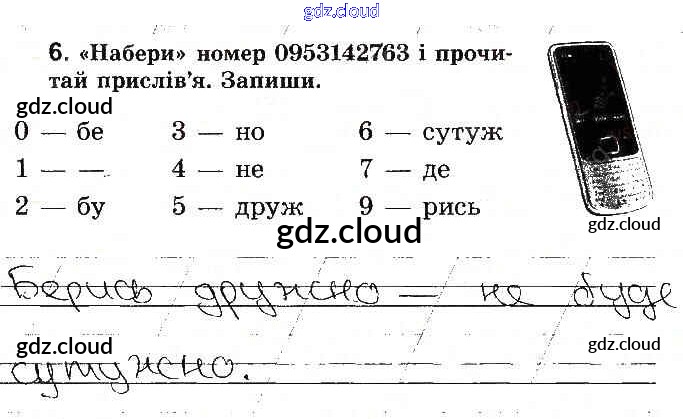 gdz.cloud
6. «Набери» номер 0953142763 і прочи-
тай прислів'я. Запиши.
gdz.cloud
0 — бе 3 — но 6 — сутуж
1 — — 4 — не 7 — де
2 — бу 5 — друж 9 — рись
gdz.cloud
gdz.cloud
Берись дружно — не буде
gdz.cloud
gdz.cloud
сутужно.